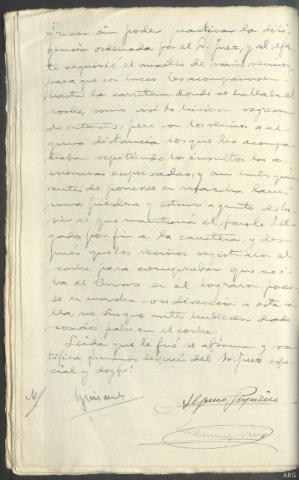 gresar sin poder practicar la dili-
gencia ordenada por el Sr. Juez, y al efec-
to requirió el auxilio de varios vecinos,
para que con luces les acompañasen
hasta la carretera donde se hallaba el
coche, como así lo hicieron regresan-
do entonces, pero con los vecinos a al-
guna distancia los que les acompa-
ñaban repitiendo los insultos las a-
menazas expresadas, y un
antes de ponerse en marcha
una piedra y estuvo a punto de he-
rir al que mantenía el farol. Lle-
gado por fin a la carretera, y des-
pués que los vecinos registraron el
coche para comprobar que no i-
ba el en el, lograron poner-
se en marcha con dirección a esta vi-
lla, no sin que antes hubiesen dado
palos en el coche.
Leída que le fué se afirma y ra-
tifica firmando después del Sr. Juez espe-
cial y doy fé
ARG